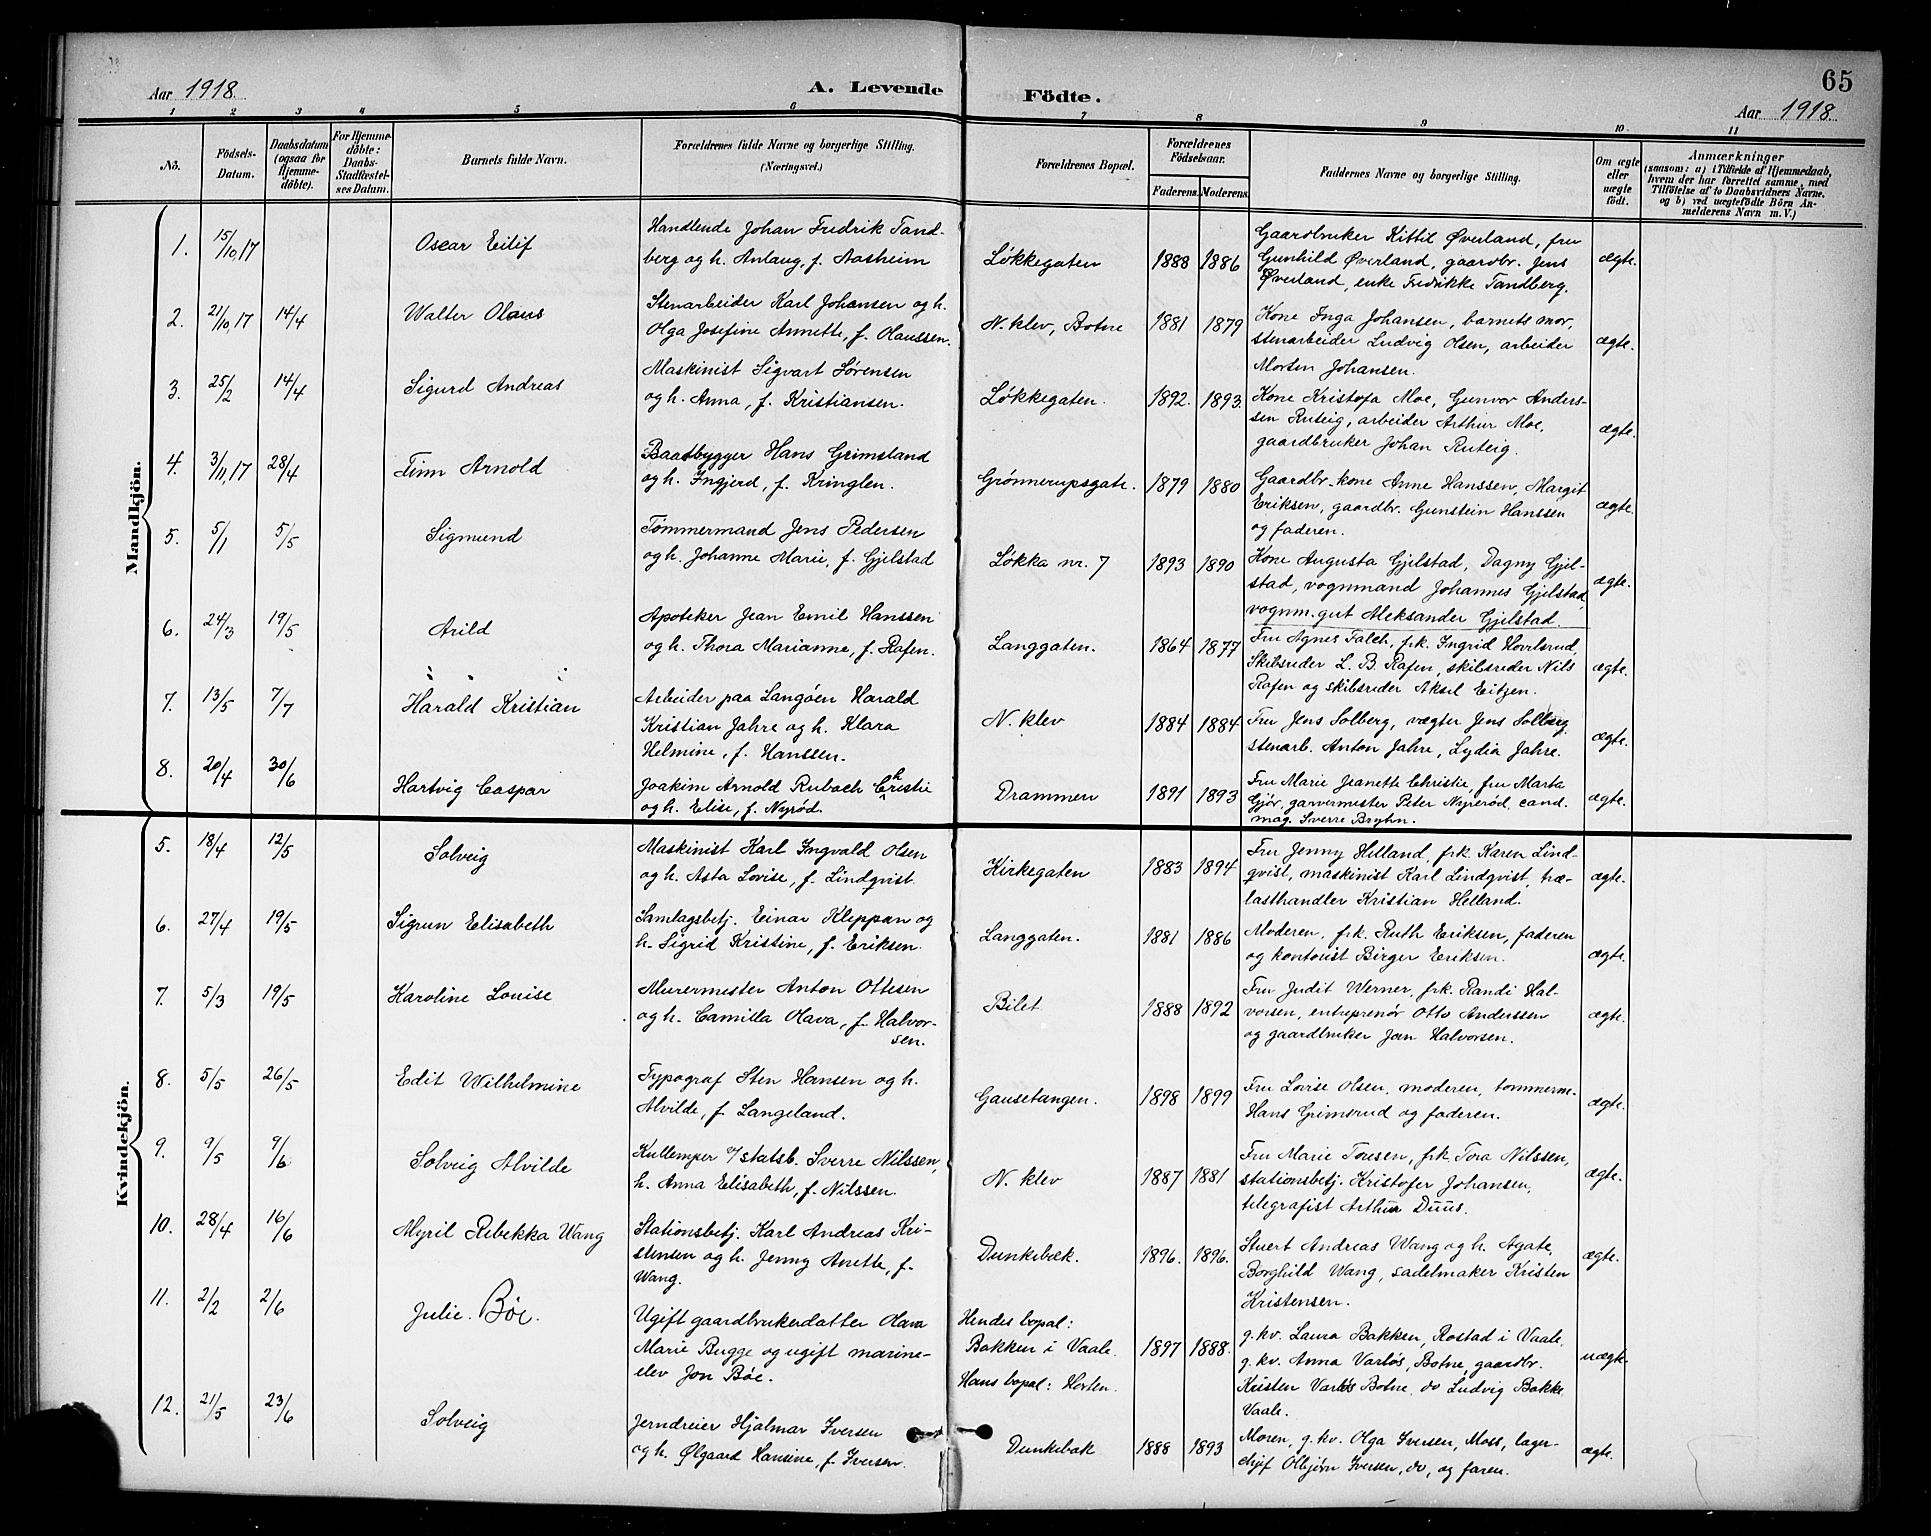 65
Aar 1918.
A. Levende Födte.
Aar 1918.
1 2 3 4 5 6 7 8 9 10 11
No.
Födsels-Datum.
Daabsdatum (ogsaa for Hjemme-döbte).
For Hjemme-döbte: Daabs-Stadfæstel-ses Datum.
Barnets fulde Navn.
Forældrenes fulde Navne og borgerlige Stilling. (Næringsvei.)
Forældrenes Bopæl.
Forældrenes Födselsaar.
Faderens. Moderens.
Faddernes Navne og borgerlige Stilling.
Om ægte eller uægte födt.
Anmærkninger
(saasom: a) i Tilfælde af Hjemmedaab,
hvem der har forrettet samme, med
Tilföielse af to Daabsvidners Navne.
og b) ved uægtefödte Börn An-
melderens Navn m. V.)
Mandkjön.
1. 15/10,17 Oscar Eilif
Handlende Johan Fredrik Tand-
berg og h. Anlaug, f. Aasheim
Løkkegaten 1888 1886
Gaardbruker Kittil Øverland, fru
Gunhild Øverland, gaardbr. Jens
Øverland, enke Fredrikke Tandberg.
ægte.
2. 21/10,17 14/4 Walter Olaus
Stenarbeider Karl Johansen og h.
Olga Josefine Annette, f. Olaussen.
N. klev, Botne 1881 1879
Kone Inga Johansen, barnets mor,
stenarbeider Ludvig Olsen, arbeider
Morten Johansen.
ægte.
3. 25/2 14/4 Sigurd Andreas
Maskinist Sigvart Sørensen
og h. Anna, f. Kristiansen.
Løkkegaten. 1892. 1893.
Kone Kristofa Moe, Gunvor Anders-
sen Ruteig, arbeider Arthur Moe,
gaardbruker Johan Ruteig.
ægte.
4. 3/11,17 28/4 Finn Arnold
Baatbygger Hans Grimsland
og h. Ingjerd, f. Kringlen.
Grønnerupsgate. 1879 1880
Gaardbr.-kone Anne Hanssen, Margit
Eriksen, gaardbr. Gunstein Hanssen
og faderen.
ægte.
5. 5/1 5/5 Sigmund
Tømmermand Jens Pedersen
og h. Johanne Marie, f. Gjelstad
Løkka nr. 7 1893 1890
Kone Augusta Gjelstad, Dagny Gjel-
stad, vognmand Johannes Gjelstad,
vognm. gut Aleksander Gjelstad.
ægte.
6. 24/3 19/5 Arild
Apoteker Jean Emil Hanssen
og h. Thora Marianne, f. Rafen.
Langgaten. 1864 1877
Fru Agnes Falch, frk. Ingrid Hovlsrud,
Skibsreder L. B. Rafen, skibsreder Nils
Rafen og skibsreder Aksel Eitzen.
ægte.
7. 13/5 7/7 Harald Kristian
Arbeider paa Langøen Harald
Kristian Jahre og h. Klara
Helmine, f. Hanssen.
N. klev 1884 1884
Fru Jens Solberg, vægter Jens Solberg
stenarb. Anton Jahre, Lydia Jahre.
ægte.
8. 20/4 30/6 Hartvig Caspar
Joakim Arnold Rubach Christie
og h. Elise, f. Nyrød.
Drammen 1891 1893
Fru Marie Jeanette Christie, fru Marta
Gjør, garvermester Peter Nyrerød, cand.
mag. Sverre Bryhn.
ægte.
Kvindekjön.
5. 18/4 12/5 Solveig
Maskinist Karl Ingvald Olsen
og h. Asta Lovise, f. Lindqvist
Kirkegaten 1883 1894
Fru Jenny Helland, frk. Karen Lind-
qvist, maskinist Karl Lindqvist, træ-
lasthandler Kristian Helland.
ægte.
6. 27/4 19/5 Sigrun Elisabeth
Samlagsbetj. Einar Kleppan og
h. Sigrid Kristine, f. Eriksen.
Langgaten. 1881 1886
Moderen, frk. Ruth Eriksen, faderen
og kontorist Birger Eriksen.
ægte.
7. 5/3 19/5 Karoline Louise
Murermester Anton Ottesen
og h. Camilla Olava, f. Halvor-
sen.
Bilet 1888 1892
Fru Judit Werner, frk. Randi Hal-
vorsen, entreprenør Otto Anderssen
og gaardbruker Jørn Halvorsen.
ægte.
8. 5/5 26/5 Edit Wilhelmine
Typograf Sten Hansen og h.
Alvilde, f. Langeland.
Gausetangen. 1898 1899
Fru Lovise Olsen, moderen, tømmerm.
Hans Grimsrud og faderen.
ægte.
9. 9/5 9/6 Solveig Alvilde
Kullemper v/ statsb. Sverre Nilssen,
h. Anna Elisabeth, f. Nilssen.
N. klev 1887 1881
Fru Marie Toresen, frk. Tora Nilssen,
stationsbetj. Kristofer Johansen,
telegrafist Arthur Duus.
ægte.
10. 28/4 16/6 Myril Rebekka Wang
Stationsbetj. Karl Andreas Kri-
stensen og h. Jenny Anette, f.
Wang.
Dunkebæk. 1896. 1896.
Stuert Andreas Wang og h. Agate,
Borghild Wang, sadelmaker Kristen
Kristensen.
ægte.
11. 2/2 2/6 Julie. Bøe.
Ugift gaardbrukerdatter Olava
Marie Bugge og ugift marine-
elev Jon Bøe.
Hendes bopal:
Bakken i Vaale.
Hans bopal: Horten.
1897 1888.
g. kv. Laura Bakken, Rostad i Vaale,
g. kv. Anna Varløs, Botne, gaardbr.
Kristen Varløs Botne, do Ludvig Bakke
Vaale.
uægte.
12. 21/5 23/6 Solveig
Jerndreier Hjalmar Iversen
og h. Ølgaard Hansine, f. Iversen.
Dunkebæk 1888 1893
Moren, g. kv. Olga Iversen, Moss, lager-
chef Olbjørn Iversen, do, og faren.
ægte.